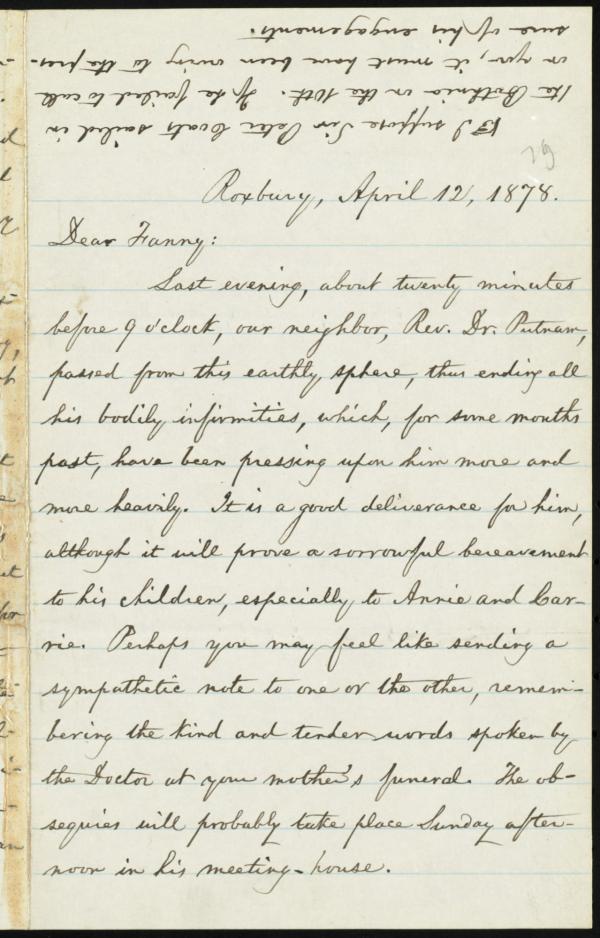 ☞ I suppose Sir Peter Coats sailed in
the Bothnia on the 10th. If he failed to call
on you, it must have been owing to the pres-
sure of his engagements.
79
Roxbury, April 12, 1878.
Dear Fanny:
Last evening, about twenty minutes
before 9 o'clock, our neighbor, Rev. Dr. Putnam,
passed from this earthly sphere, thus ending all
his bodily infirmities, which, for some months
past, have been pressing upon him more and
more heavily. It is a good deliverance for him,
although it will prove a sorrowful bereavement
to his children, especially to Annie and Car-
rie. Perhaps you may feel like sending a
sympathetic note to one or the other, remem-
bering the kind and tender words spoken by
the Doctor at your mother's funeral. The ob-
sequies will probably take place Sunday after-
noon in his meeting-house.